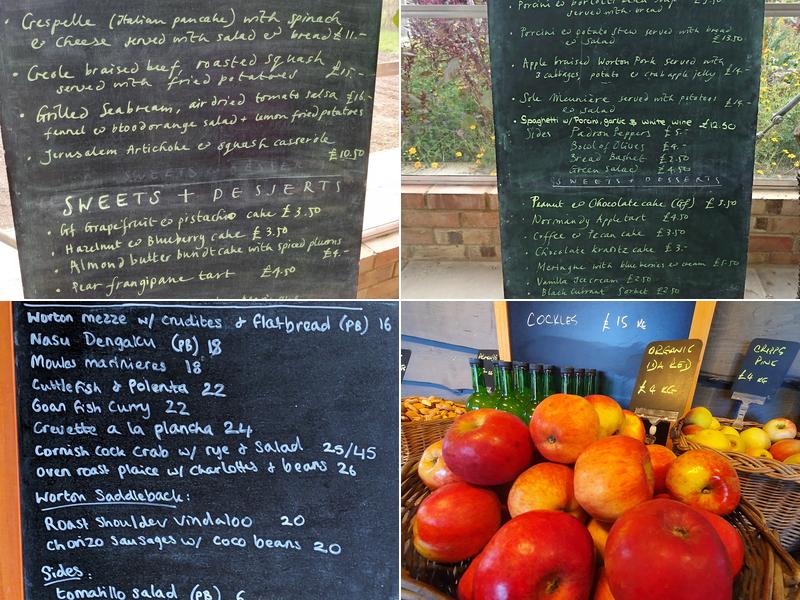 Crespelle (Italian pancake) with spinach
& cheese served with salad & bread £11.-
• Creole braised beef, roasted squash
served with fried potatoes £15.-
• Grilled Seabream, air dried tomato salsa £16.-
fennel & blood orange salad + lemon fried potatoes
• Jerusalem Artichoke & squash casserole
£10.50
SWEETS + DESSERTS
• Gf Grapefruit & pistachio cake £3.50
• Hazelnut & Blueberry cake £3.50
• Almond butter bundt cake with spiced plums
£4.-
• Pear frangipane tart £4.50
served with bread
• Porcini & potato stew served with bread
& Salad £13.50
• Apple braised Worton Pork served with
3 cabbages, potato & crab apple jelly £14.-
• Sole Meunière served with potatoes
& Salad £14.-
• Spaghetti w/ Porcini, garlic & white wine £12.50
Sides Padron Peppers £5.-
Bowl of Olives £4.-
Bread Basket £2.50
Green Salad £4.50
SWEETS + DESSERTS
Peanut & Chocolate cake (GF) £3.50
• Normandy Apple tart £4.50
• Coffee & Pecan cake £3.50
• Chocolate krantz cake £3.-
• Meringue with blueberries & cream £5.50
• Vanilla Icecream £2.50
• Blackcurrant Sorbet £2.50
Worton mezze w/ crudites & flatbread (PB) 16
Nasu Dengaku (PB) 18
Moules marinieres 18
Cuttlefish & Polenta 22
Goan fish Curry 22
Crevette a la plancha 24
Cornish cock Crab w/ rye & Salad 25/45
oven roast plaice w/ Charlottes & beans 26
Worton Saddleback:
Roast Shoulder vindaloo 20
chorizo sausages w/ coco beans 20
Sides:
tomatillo salad (PB) 6
COCKLES £15 KG
ORGANIC
(DK RED)
£4 KG
CRIPPS
PINK
£4 KG